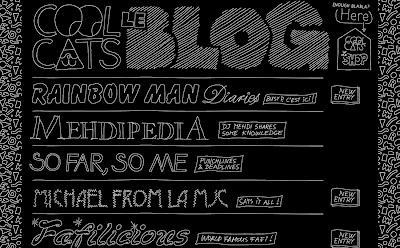 COOL CATS
LE BLOG
ENOUGH BLABLA?
(Here)
COOL CATS SHOP
RAINBOW MAN Diaries
BUSY P C'EST ICI!
NEW ENTRY
MEHDIPEDIA
DJ MEHDI SHARES SOME KNOWLEDGE
SO FAR, SO ME
PUNCHLINES & DEADLINES
MICHAEL FROM LA MJC
SAYS IT ALL!
NEW ENTRY
Fafilicious
WORLD FAMOUS FAFI!
NEW ENTRY